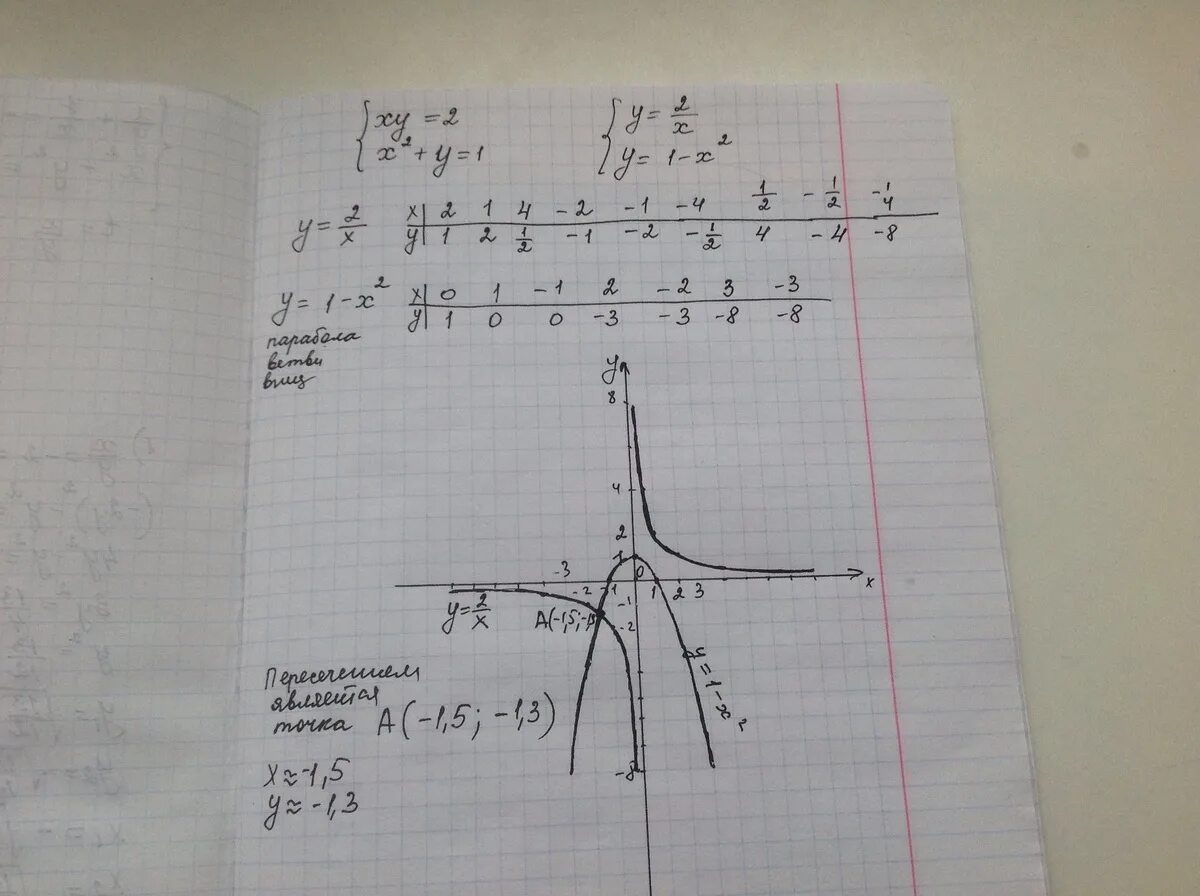 { xy = 2
x² + y = 1
{ y = 2/x
y = 1 - x²
y = 2/x
x | 2 1 4 -2 -1 -4 1/2 -1/2 -1/4
y | 1 2 1/2 -1 -2 -1/2 4 -4 -8
y = 1 - x²
x | 0 1 -1 2 -2 3 -3
y | 1 0 0 -3 -3 -8 -8
парабола
ветви
вниз
y
8
4
2
1
-3 -2 -1 0 1 2 3 x
-1
-2
-8
y = 2/x
A(-1,5; -1,3)
y = 1 - x²
Пересечением
является
точка A(-1,5; -1,3)
x ≈ -1,5
y ≈ -1,3